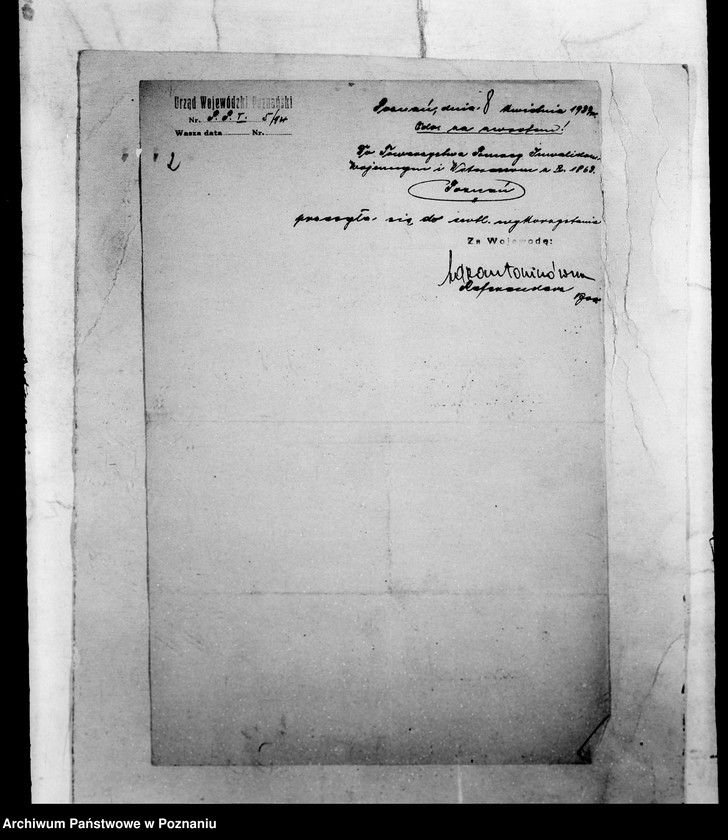 Urząd Wojewódzki Poznański
Nr. P. P. I. 5/14
Wasza data Nr.
2
Poznań, dnia 8 kwietnia 193
za zwrotem!
Do Towarzystwa Pomocy Inwalidom
Wojennym i Weteranom z R. 1863.
Poznań
przesyła się do wykorzystania
Za Wojewodę:
Referendarz
Archiwum Państwowe w Poznaniu